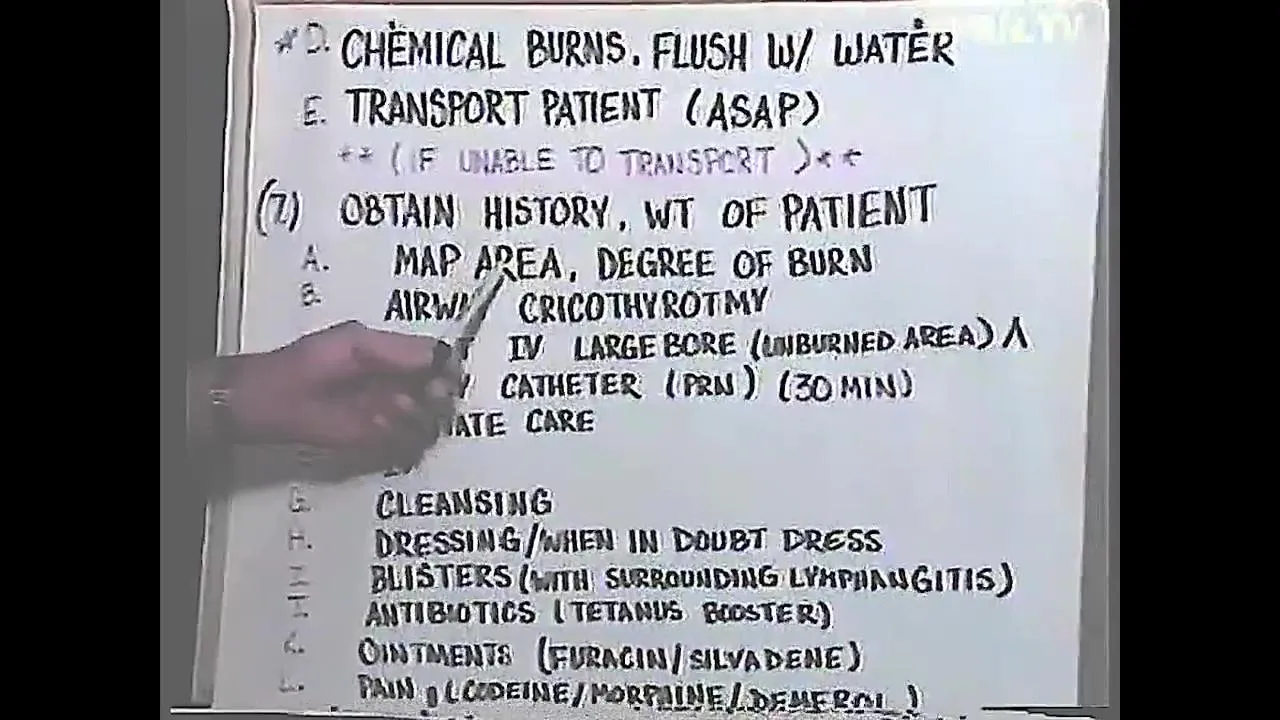 * D. CHEMICAL BURNS. FLUSH W/ WATER
E. TRANSPORT PATIENT (ASAP)
** (IF UNABLE TO TRANSPORT)**
(7) OBTAIN HISTORY, WT OF PATIENT
A. MAP AREA, DEGREE OF BURN
B. AIRWAY CRICOTHYROTMY
IV LARGE BORE (UNBURNED AREA) Λ
CATHETER (PRN) (30 MIN)
CARE
G. CLEANSING
H. DRESSING/WHEN IN DOUBT DRESS
I BLISTERS (WITH SURROUNDING LYMPHANGITIS)
ANTIBIOTICS (TETANUS BOOSTER)
K. OINTMENTS (FURACIN/SILVADENE)
L. PAIN, (CODEINE/MORPHINE/DEMEROL)